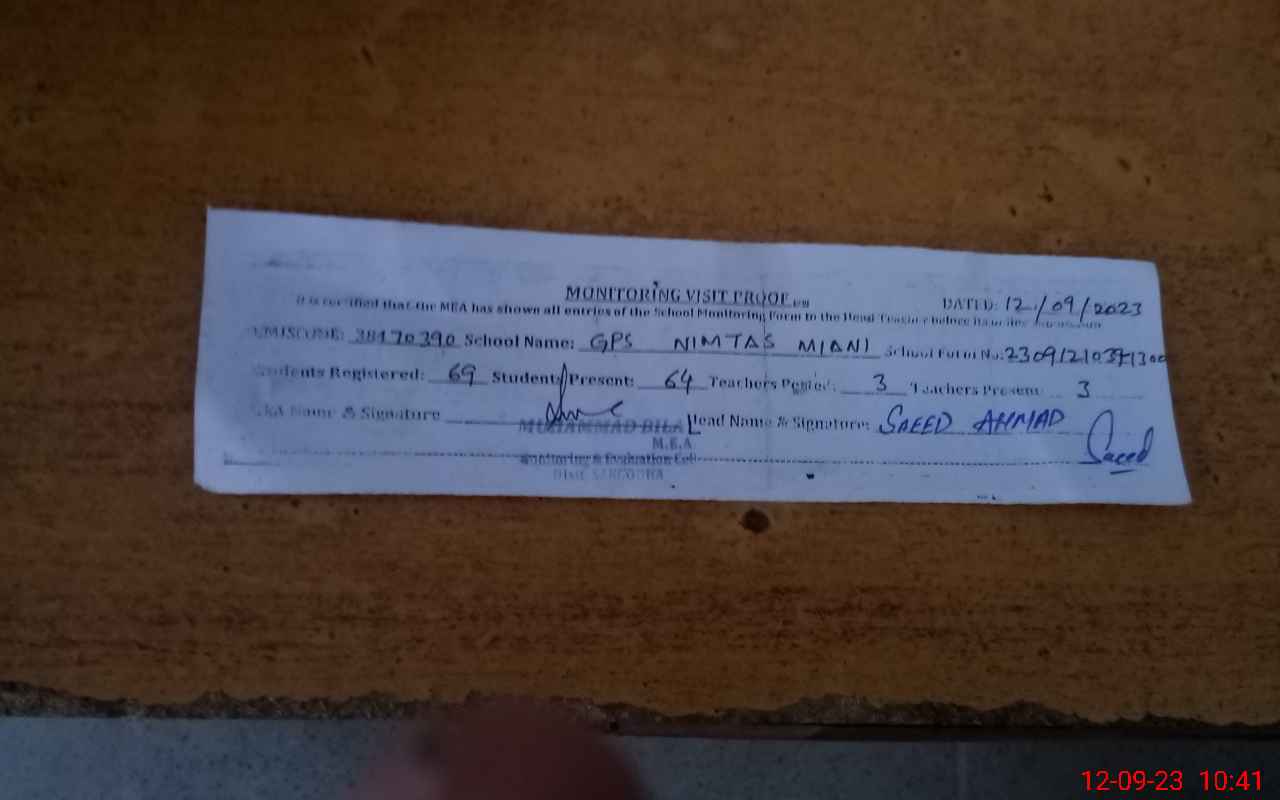 MONITORING VISIT PROOF
DATED: 12/09/2023
It is certified that the MEA has shown all entries of the School Monitoring Form to the Head Teacher before
EMISCODE: 38470390 School Name: GPS NIMTAS MIANI School Form No:
Students Registered: 69 Students Present: 64 Teachers Posted: 3 Teachers Present 3
MEA Name & Signature Head Name & Signature: SAEED AHMAD
Saeed
MUHAMMAD BILAL
M.E.A
Monitoring & Evaluation Cell
Distt SARGODHA
12-09-23 10:41